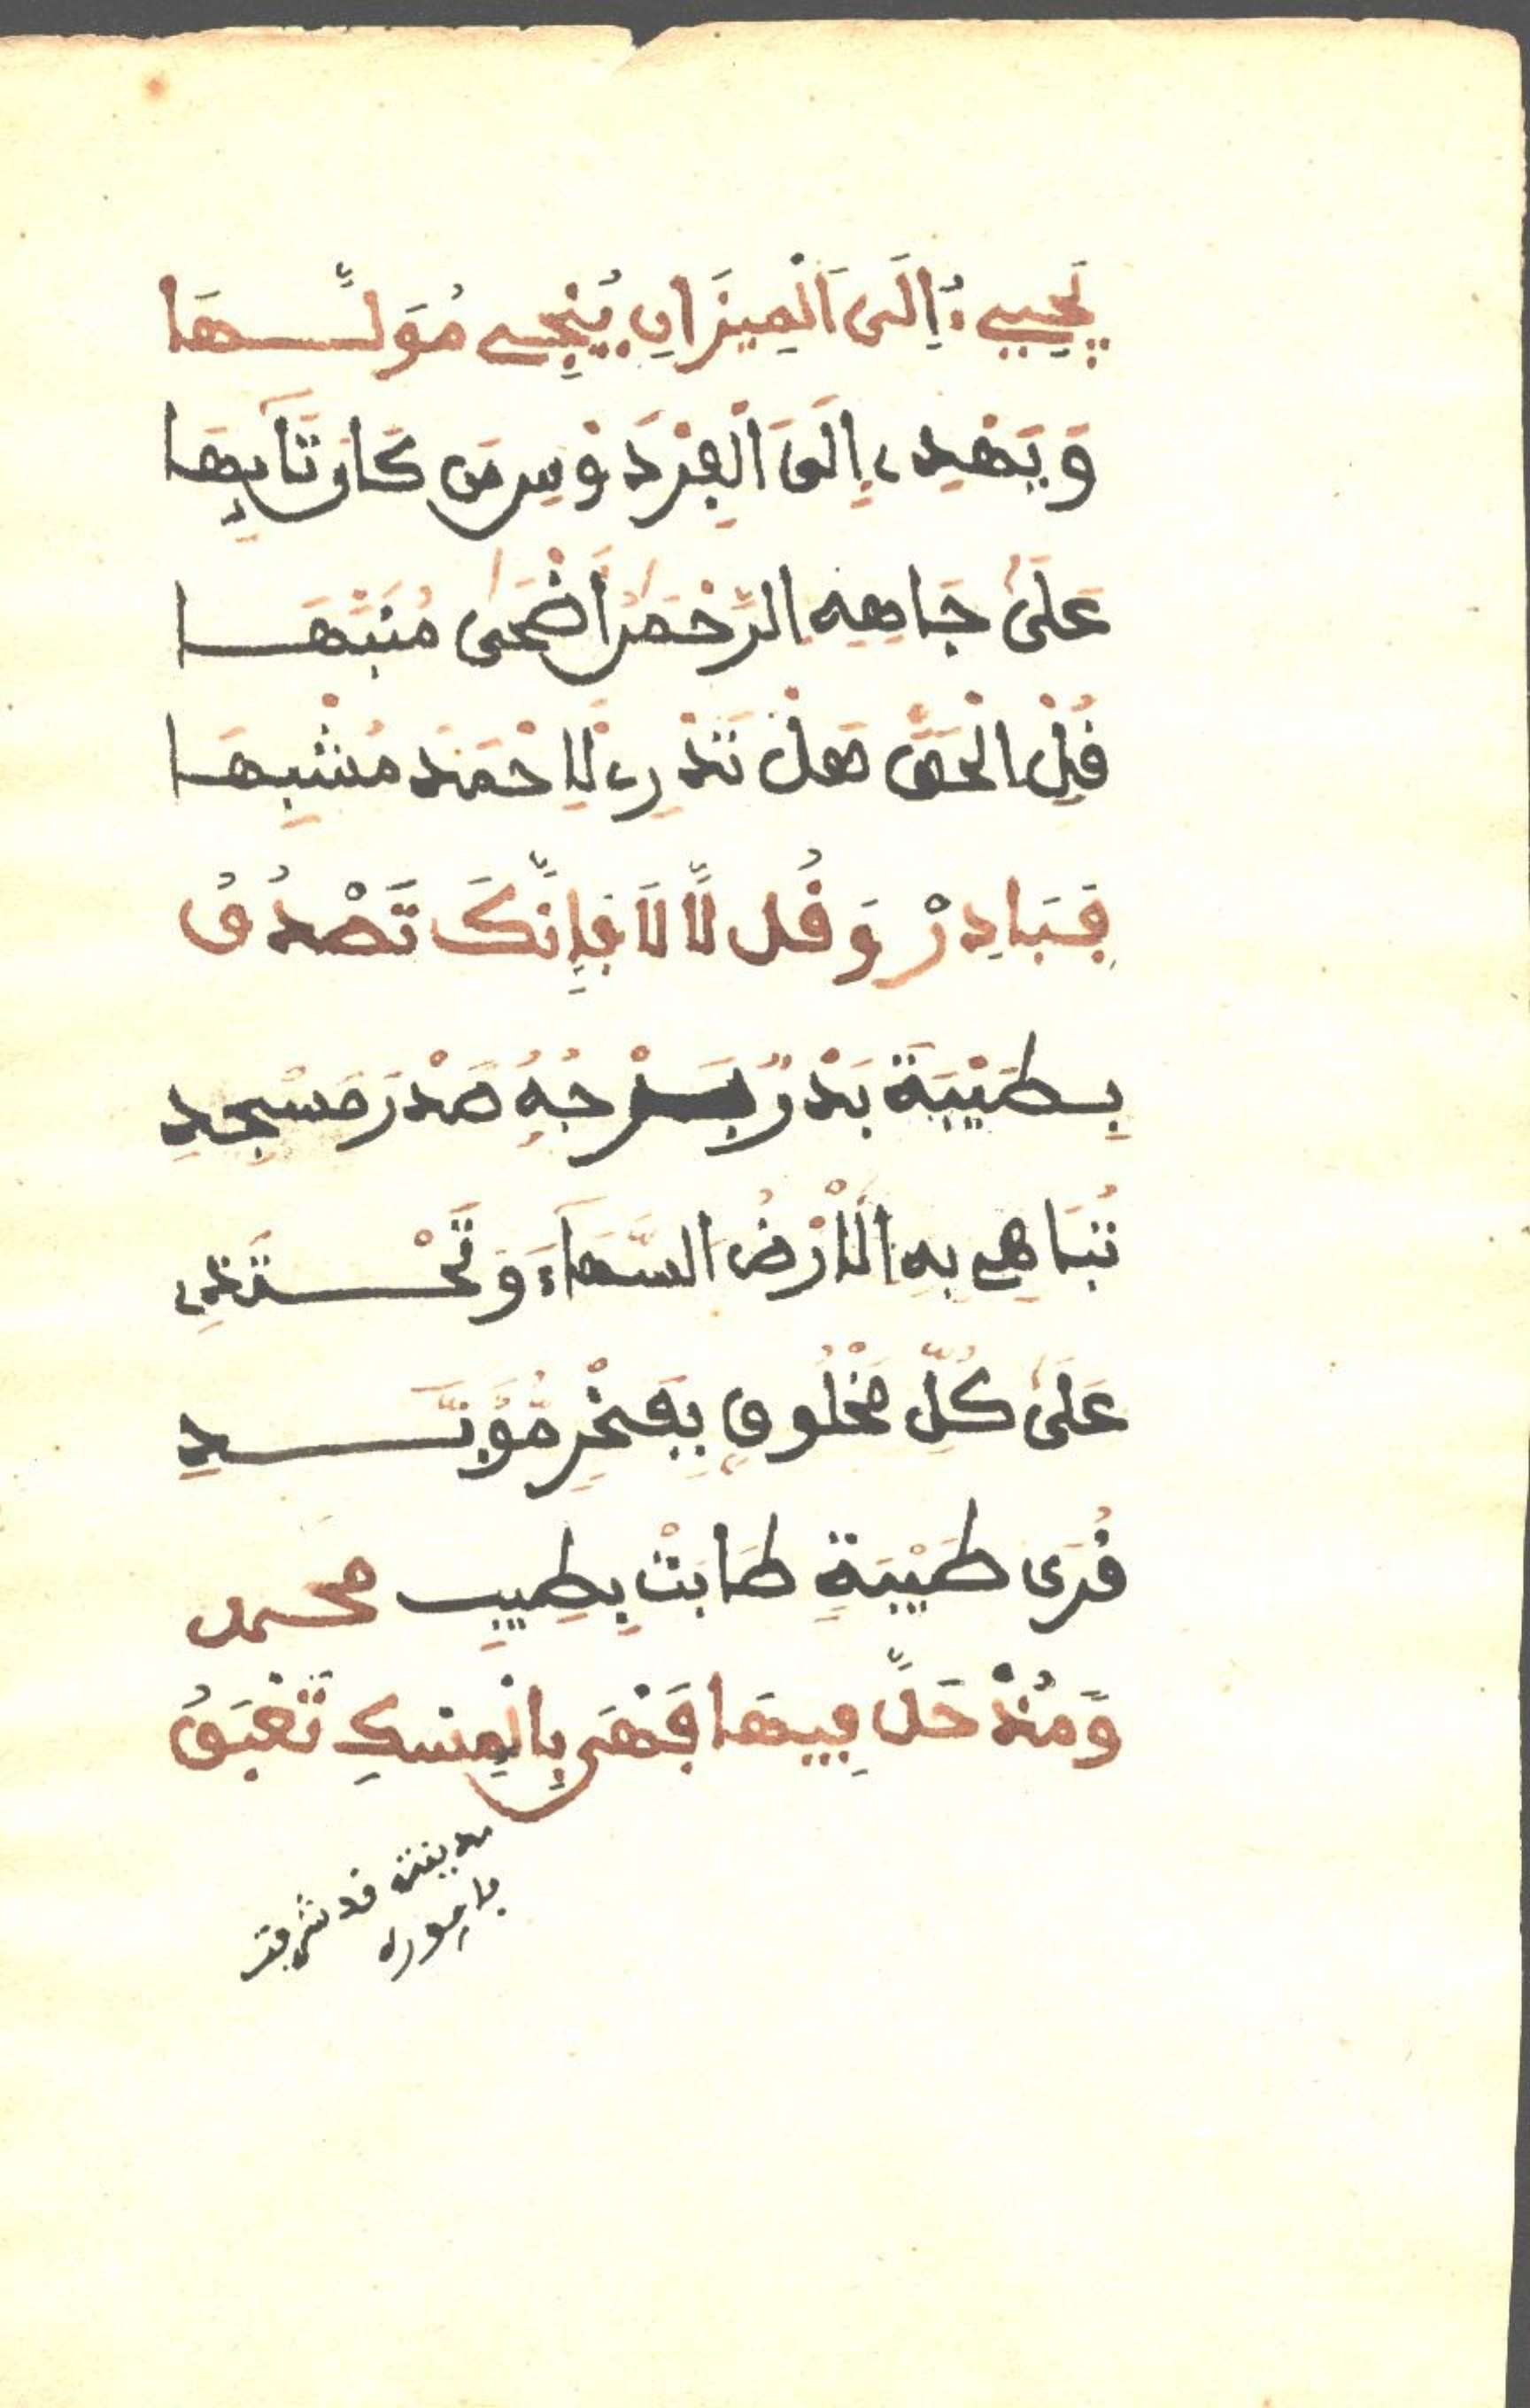 يَجِيءُ إِلَى الْمِيزَانِ يُنْجِي مُوَلَّهَا
وَيَهْدِي إِلَى الْفِرْدَوْسِ مَن كَانَ تَآيِهَا
عَلَى جَاهِهِ الرَّحْمَنُ أَضْحَى مُنَبِّهَا
فُلِ الْحَقَّ هَلْ تَدْرِي لِأَحْمَدَ مُشْبِهَا
فَبَادِرْ وَقُل لَّا لَا فَإِنَّكَ تَصْدُقُ
بِطَيْبَةَ بَدْرٌ بُرْجُهُ صَدْرَ مَسْجِدِ
تُبَاهِي بِهِ الْأَرْضُ السَّمَآءَ وَتَحْتَدِي
عَلَى كُلِّ مَخْلُوقٍ بِفَخْرٍ مُّؤَبَّدِ
قُرَى طَيْبَةٍ طَابَتْ بِطِيبِ محمد
وَمُذْ حَلَّ فِيهَا فَهْىَ بِالْمِسْكِ تَعْبَقُ
مدينة قد شرفت